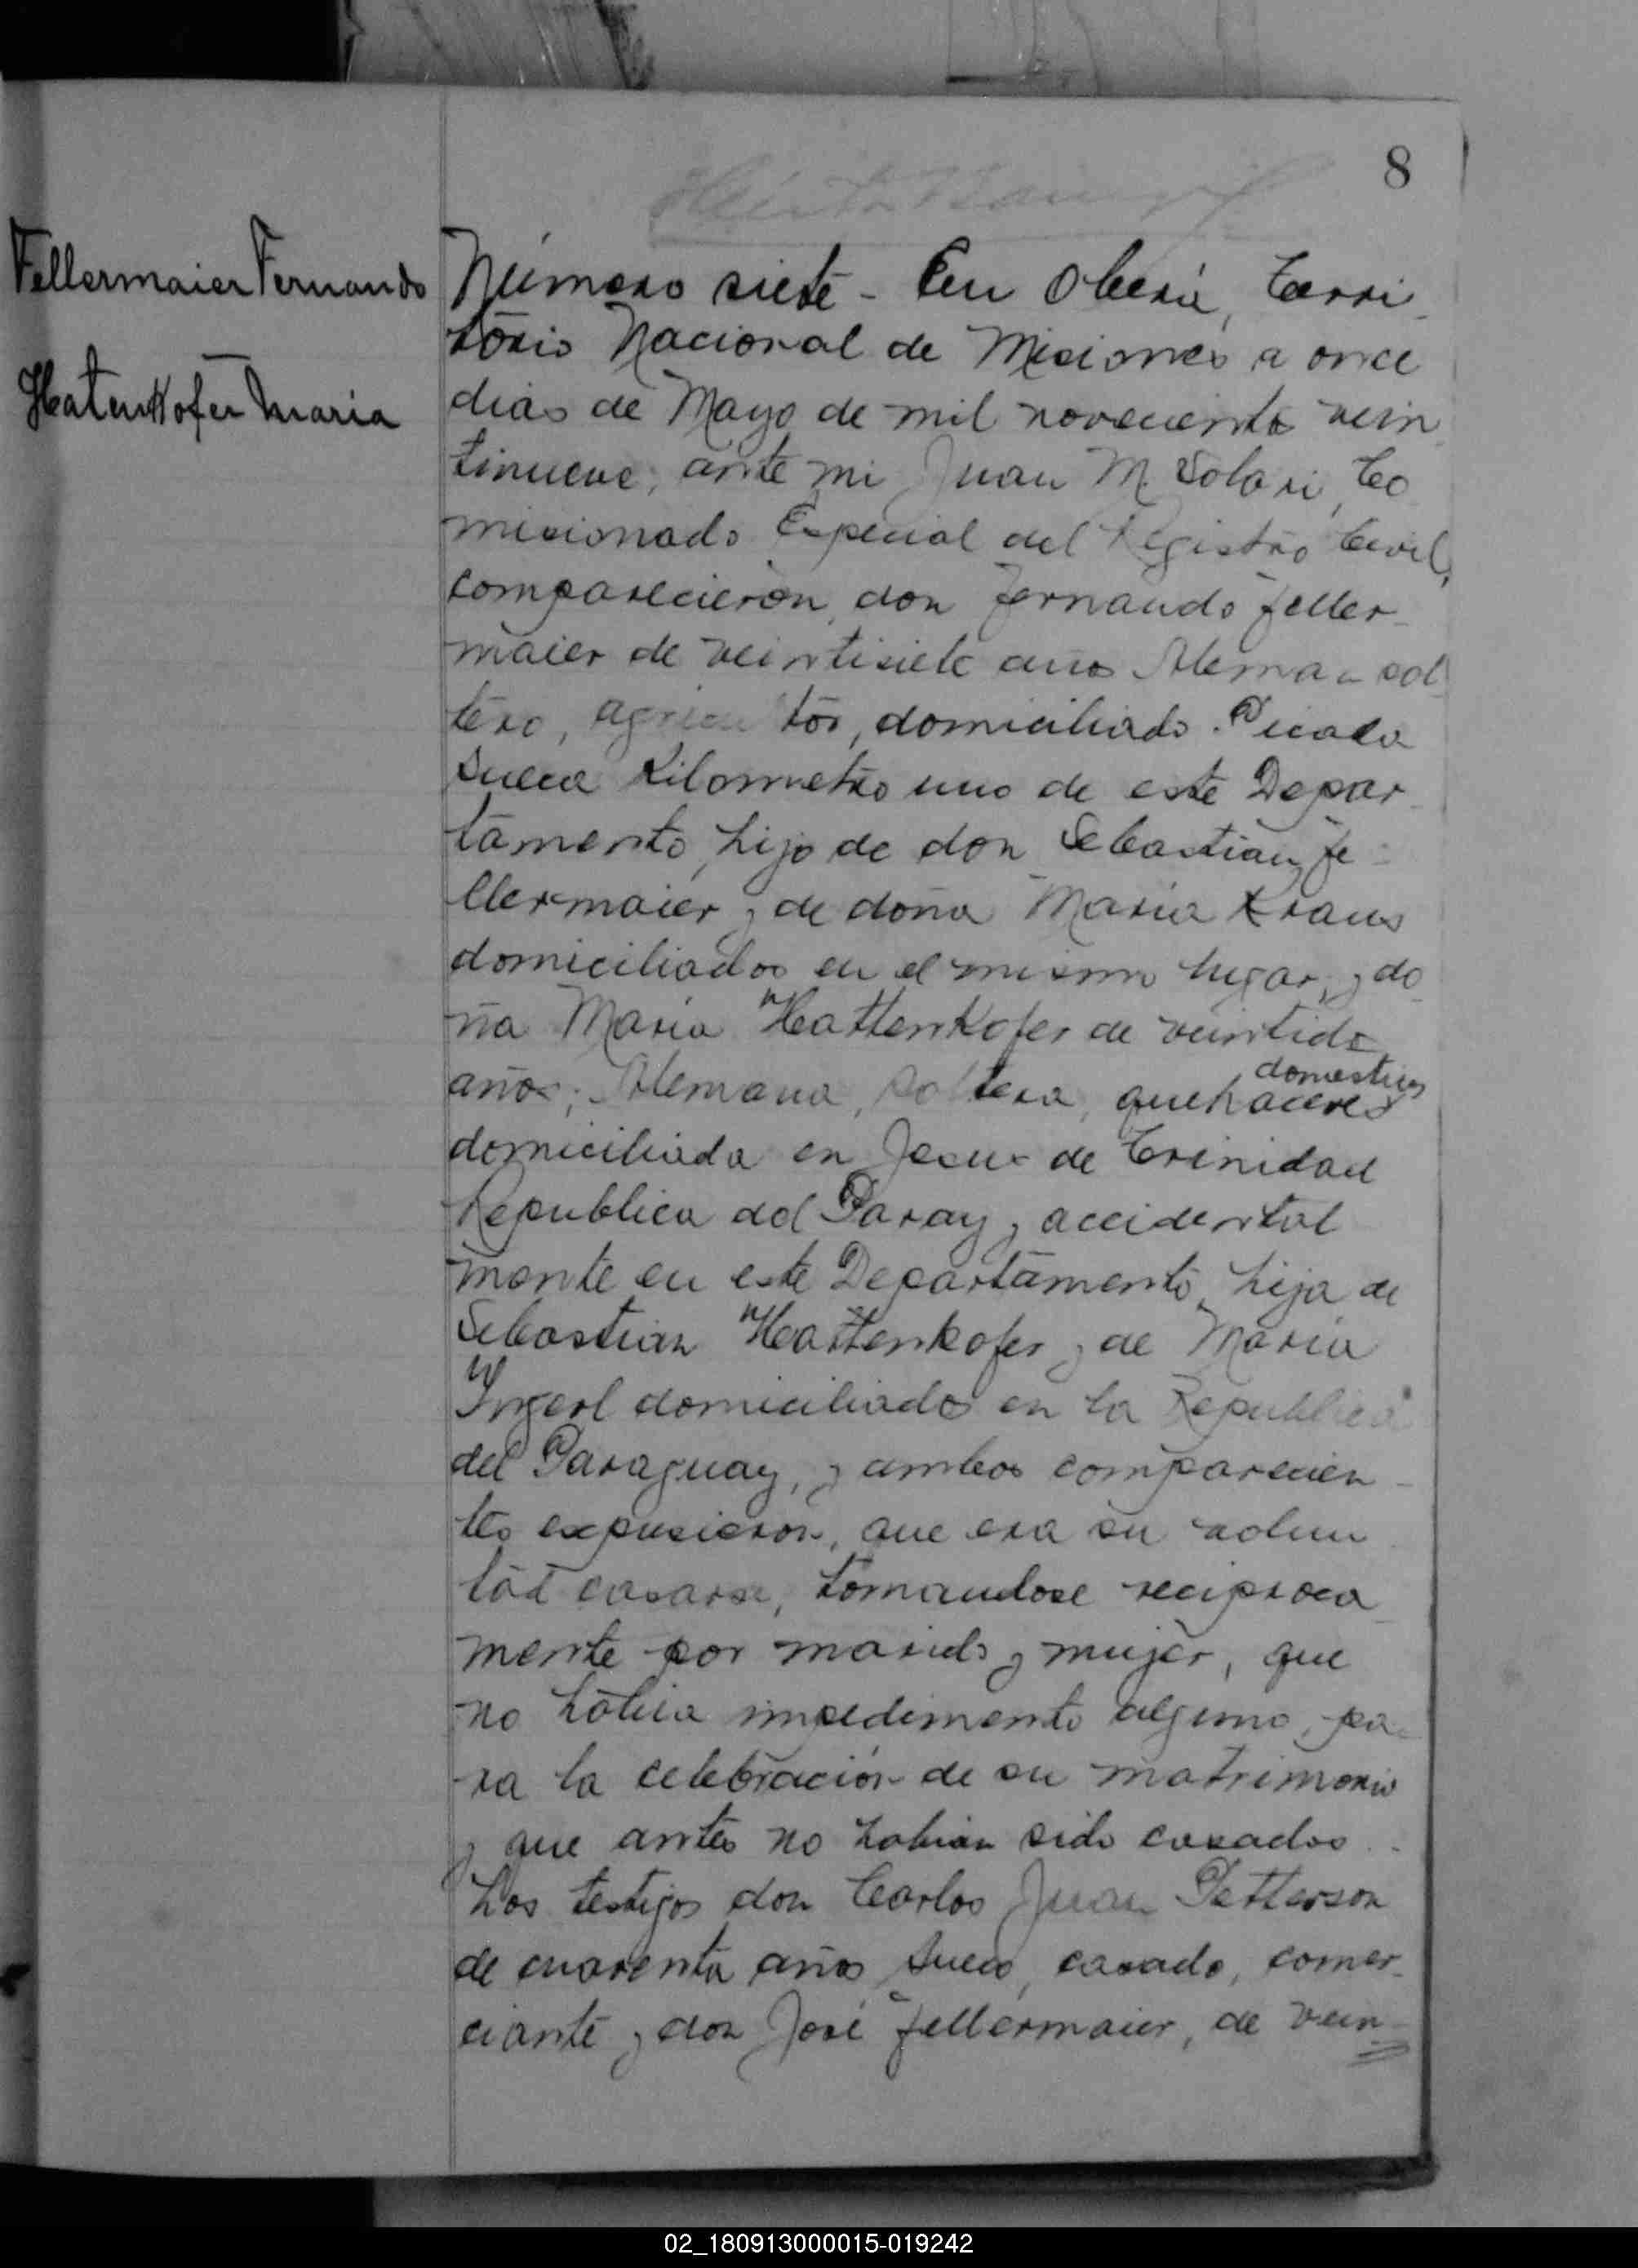 8
Fellermaier Fernando
Hatenkofer Maria
Número siete - En Oberá, Terri
torio Nacional de Misiones a once
dias de Mayo de mil novecientos vein
tinueve, ante mi Juan M. Solari, Co
misionado Especial del Registro Civil,
comparecieron, don Fernando Feller-
maier de veintisiete años Aleman sol
tero, agricultor, domiciliado Picada
Sueca Kilometro uno de este Depar
tamento, hijo de don Sebastian Fe-
llermaier y de doña Maria Kraus
domiciliados en el mismo lugar, y do
ña Maria Hattenkofer de veintidos
años, Alemana, soltera, quehaceres domesticos
domiciliada en Jesus de Trinidad
Republica del Paray, accidental
mente en este Departamento, hija de
Sebastian Hattenkofer y de Maria
Ingerl domiciliados en la Republica
del Paraguay, y ambos comparecien-
tes expusieron, que era su volun
tad casarse, tomandose reciproca
mente por marido y mujer, que
no habia impedimento alguno, pa-
ra la celebración de su matrimonio
y que antes no habian sido casados.
Los testigos don Carlos Juan Petterson
de cuarenta años, sueco, casado, comer-
ciante y don José Fellermaier, de vein-
02_180913000015-019242